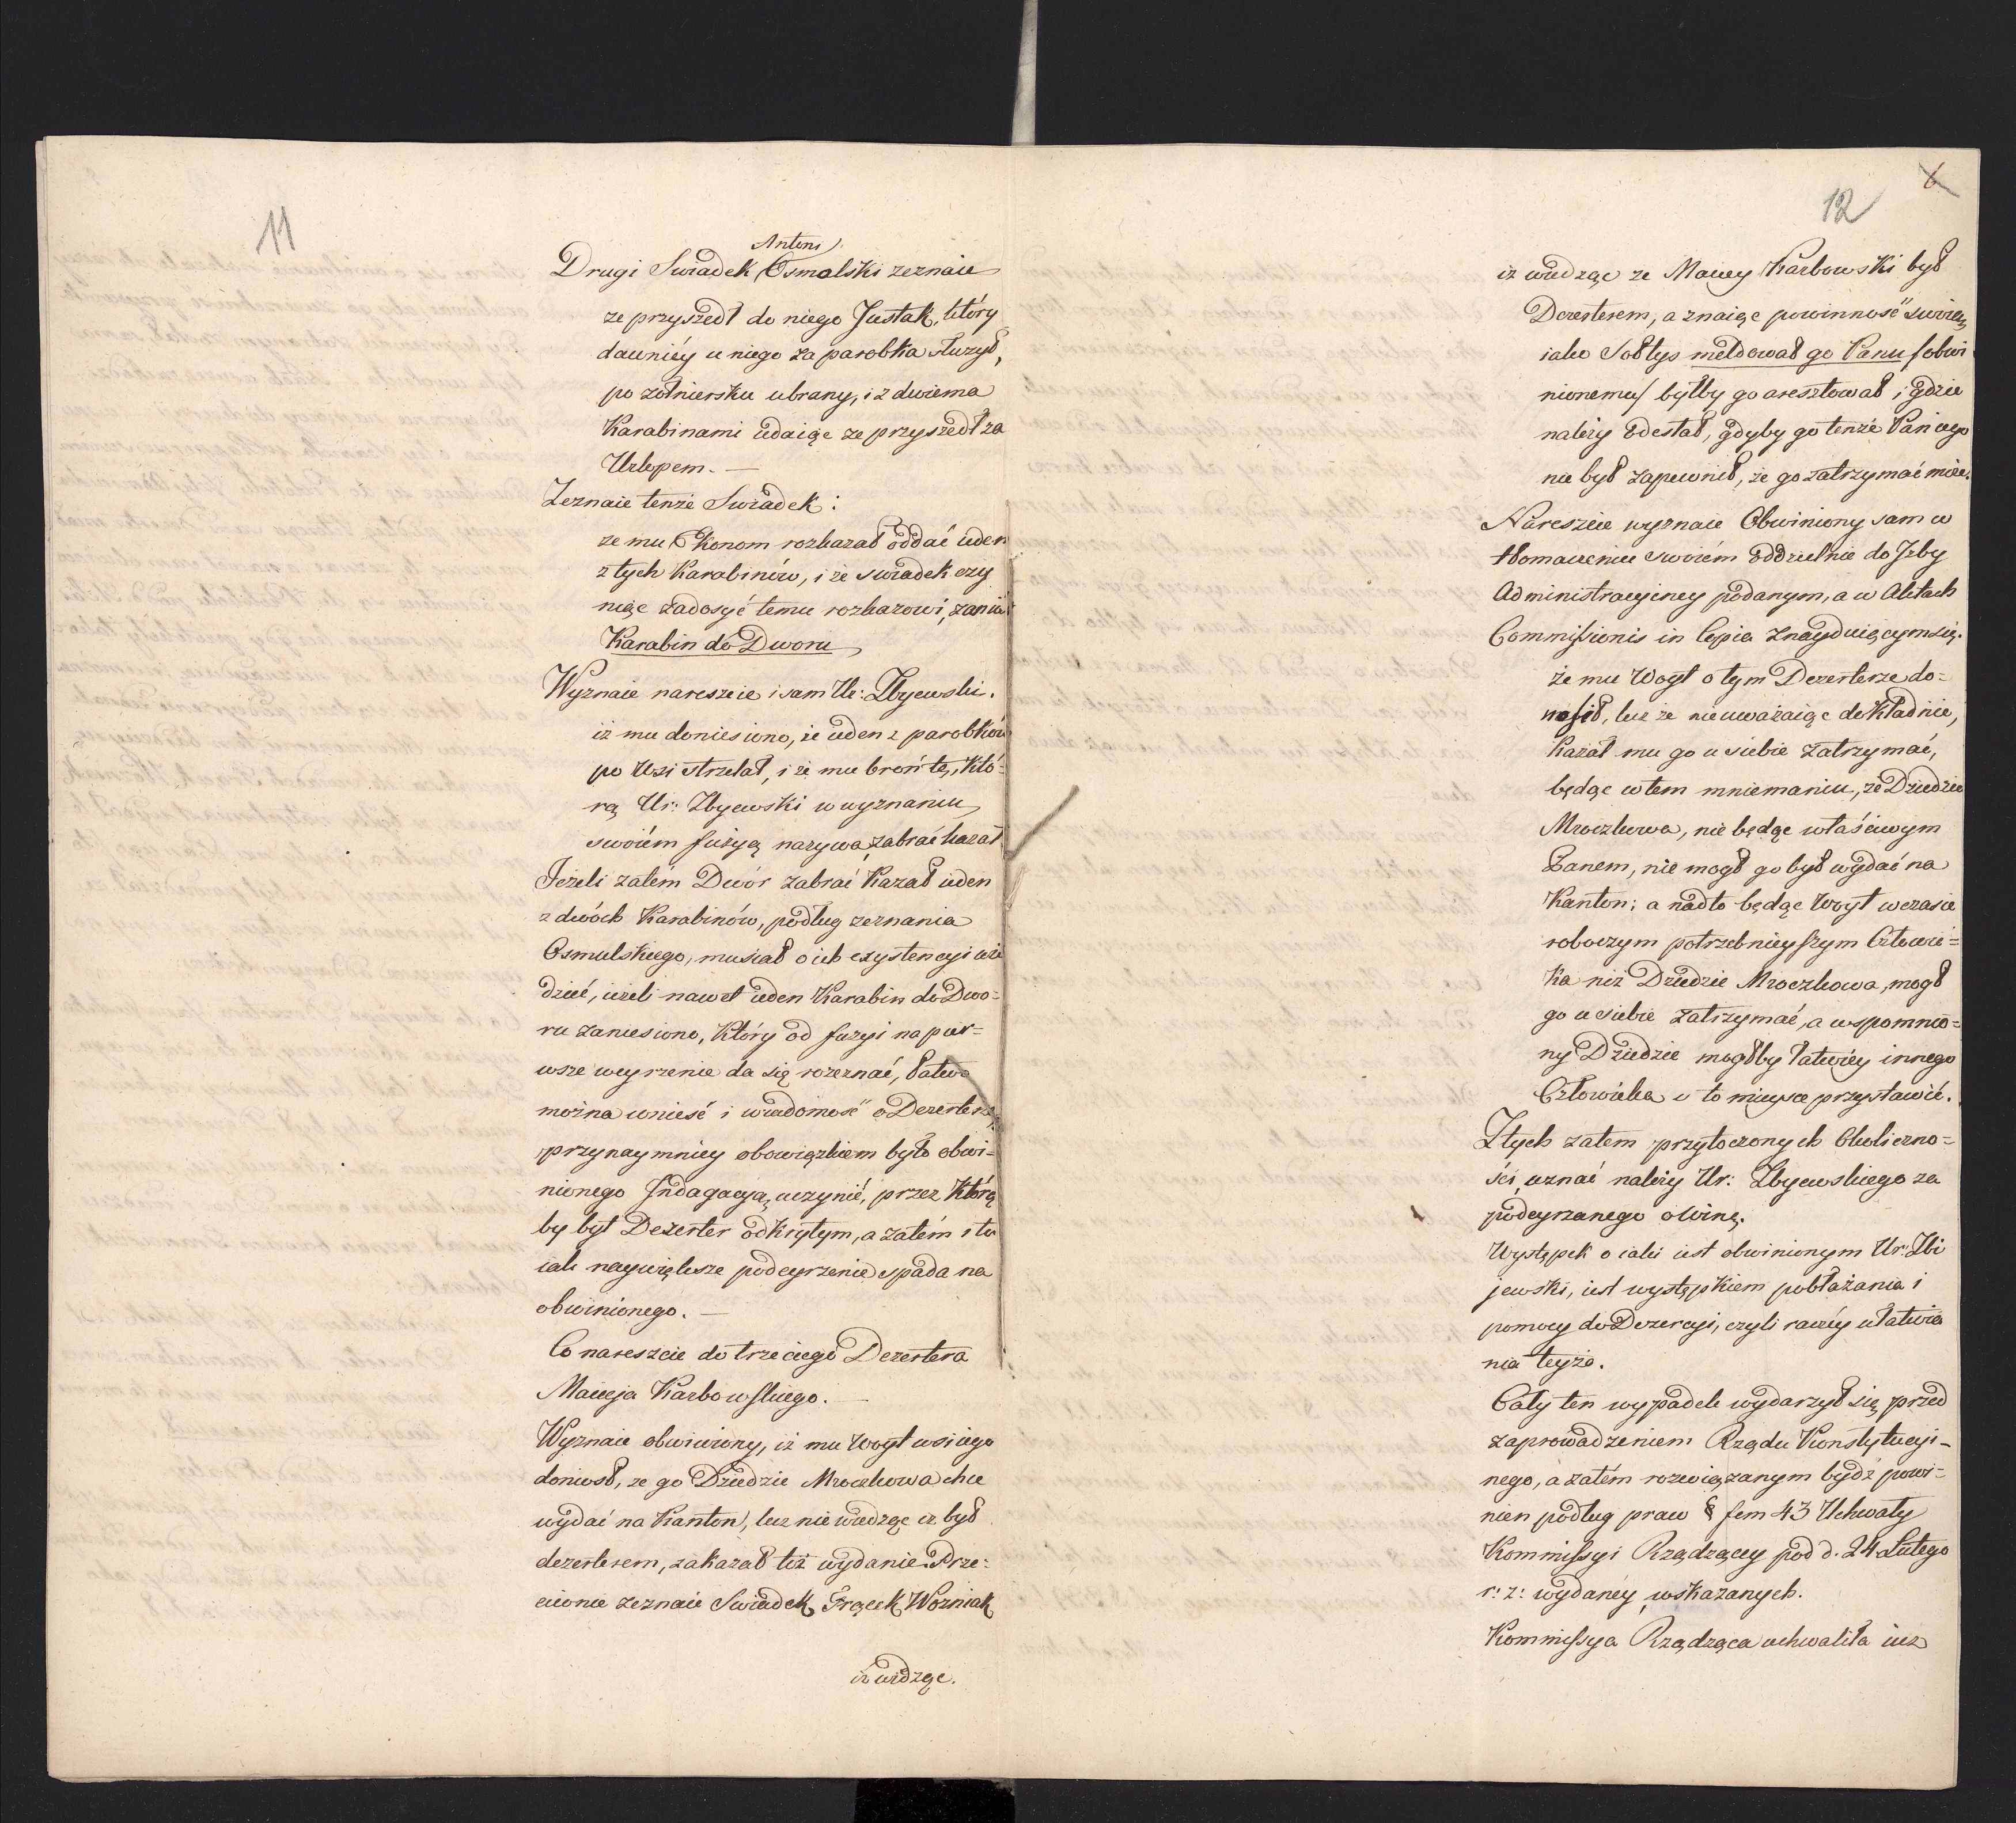 11
Antoni
Drugi Swiadek Osmolski zeznaie
ze przyszedł do niego Justak, który
dawniéy u niego za parobka służył,
po żołniersku ubrany, i z dwiema
Karabinami udaiąc ze przyszedł za
Urlopem. —
Zeznaie tenże Swiadek:
ze mu Ekonom rozkazał oddać ieden
z tych Karabinów, i że swiadek czy
niąc zadosyć temu rozkazowi, zaniósł
Karabin do Dworu
Wyznaie nareszcie i sam Ur: Zbyewski.
iż mu doniesiono, że ieden z parobków
po Wsi strzelał, i że mu broń tę, któ=
rą Ur: Zbyewski w wyznaniu
swoiém fuzyą nazywa, zabrać kazał
Jeżeli zatém Dwór zabrać kazał ieden
z dwóch Karabinów, podług zeznania
Osmulskiego, musiał o ich exystencyi wie
dzieć, ieżeli nawet ieden Karabin do Dwo=
ru zaniesiono, który od fuzyi na pier=
wsze weyrzenie da się rozeznać, łatwo
można wnieść i wiadomość o Dezerterze,
przynaymniey obowiązkiem było obwi=
nionego Indagacyą uczynić, przez którą
by był Dezerter odkrytym, a zatém i tu
iak naywiększe podeyrzenie spada na
obwinionego. —
Co nareszcie do trzeciego Dezertera
Macieja Karbowskiego. —
Wyznaie obwiniony, iż mu Woyt wsi iego
doniosł, ze go Dziedzic Mroczkowa chce
wydać na Kanton, lecz nie wiedząc iż był
dezerterem, zakazał też wydanie. Prze=
ciwnie zeznaie Swiadek Frącek Wozniak
iż widząc.
6
12
iż widząc ze Maciey Karbowski był
Dezerterem, a znaiąc powinność swoią
iako Sołtys meldował go Panu /obwi
nionemu/ byłby go aresztował i gdzie
należy odesłał, gdyby go tenże Pan iego
nie był zapewnił, że go zatrzymać może.
Nareszcie wyznaie Obwiniony sam w
tłomaczeniu swoiém oddzielnie do Izby
Administracyiney podanym, a w Aktach
Commissionis in Copia znayduiącym się.
że mu Woyt o tym Dezerterze do=
nosił, lecz że nieuważaiąc dokładnie,
kazał mu go u siebie zatrzymać,
będąc w tem mniemaniu, że Dziedzic
Mroczkowa, nie będąc właściwym
Panem, nie mogł go był wydać na
Kanton; a nadto będąc Woyt w czasie
roboczym potrzebnieyszym Człowie=
ka niż Dziedzic Mroczkowa, mogł
go u siebie zatrzymać, a wspomnio=
ny Dziedzic mogłby łatwiéy innego
Człowieka w to mieysce przystawić.
Z tych zatem przytoczonych Okoliczno=
ści uznać należy Ur: Zbyewskiego za
podeyrzanego o Winę.
Występek o iaki iest obwinionym Ur: Zbi
jewski, iest występkiem pobłażania i
pomocy do Dezercyi, czyli raczéy ułatwia
nia teyże.
Cały ten wypadek wydarzył się przed
zaprowadzeniem Rządu Konstytucyi-
nego, a zatém rozwiązanym bydź powi=
nien podług praw § fem 43 Uchwały
Kommissyi Rządzącey pod d. 24 Lutego
r: z: wydanéy wskazanych.
Kommissya Rządząca uchwaliła iuż